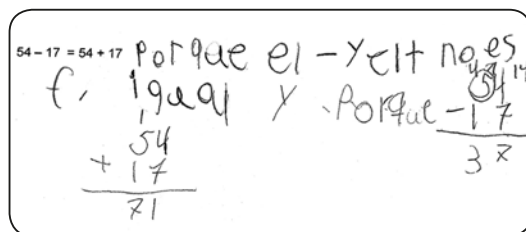 54 – 17 = 54 + 17 porque el - y el + no es
f, igual y porque
1
54
+ 17
71
4 14
54
- 17
37